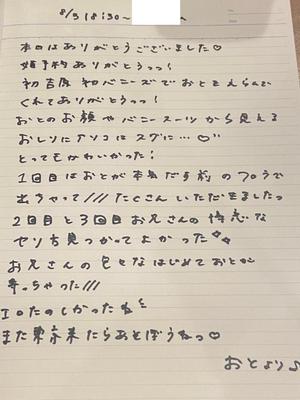 8/5 18:30~
本日はありがとうございました♡
姫予約ありがとうっっ!
初吉原初バニーズでおとをえらんで
くれてありがとうっっ!
おとのお顔やバニースーツから見える
おしりにアソコはスグに…♡
とってもかわいかった!
1回目はおとが本気だす前のフ〇ラで
出ちゃって/// たくさんいただきましたっ
2回目と3回目お兄さんの得意な
セリ方見つかってよかった
お兄さんの色々なはじめておとが
奪っちゃった///
エロたのしかったね
また東京来たらあそぼうねっ♡
おとより♪